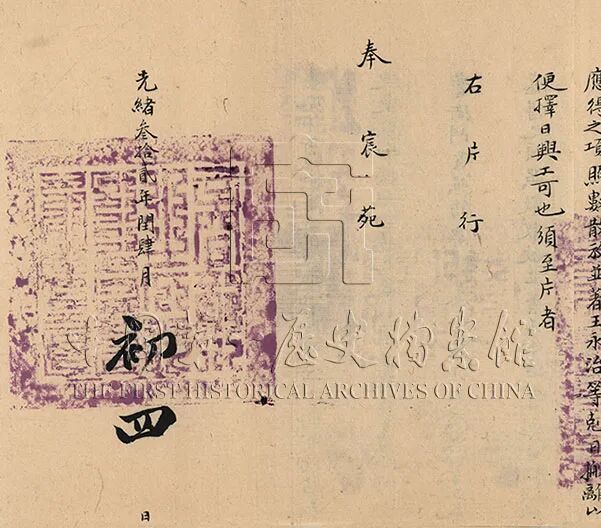 應得之項照數散放並著王永治等剋日搬離以
便擇日興工可也須至片者
右片行
奉宸苑
光緒叁拾貳年閏肆月初四日
中國第一歷史檔案館
THE FIRST HISTORICAL ARCHIVES OF CHINA